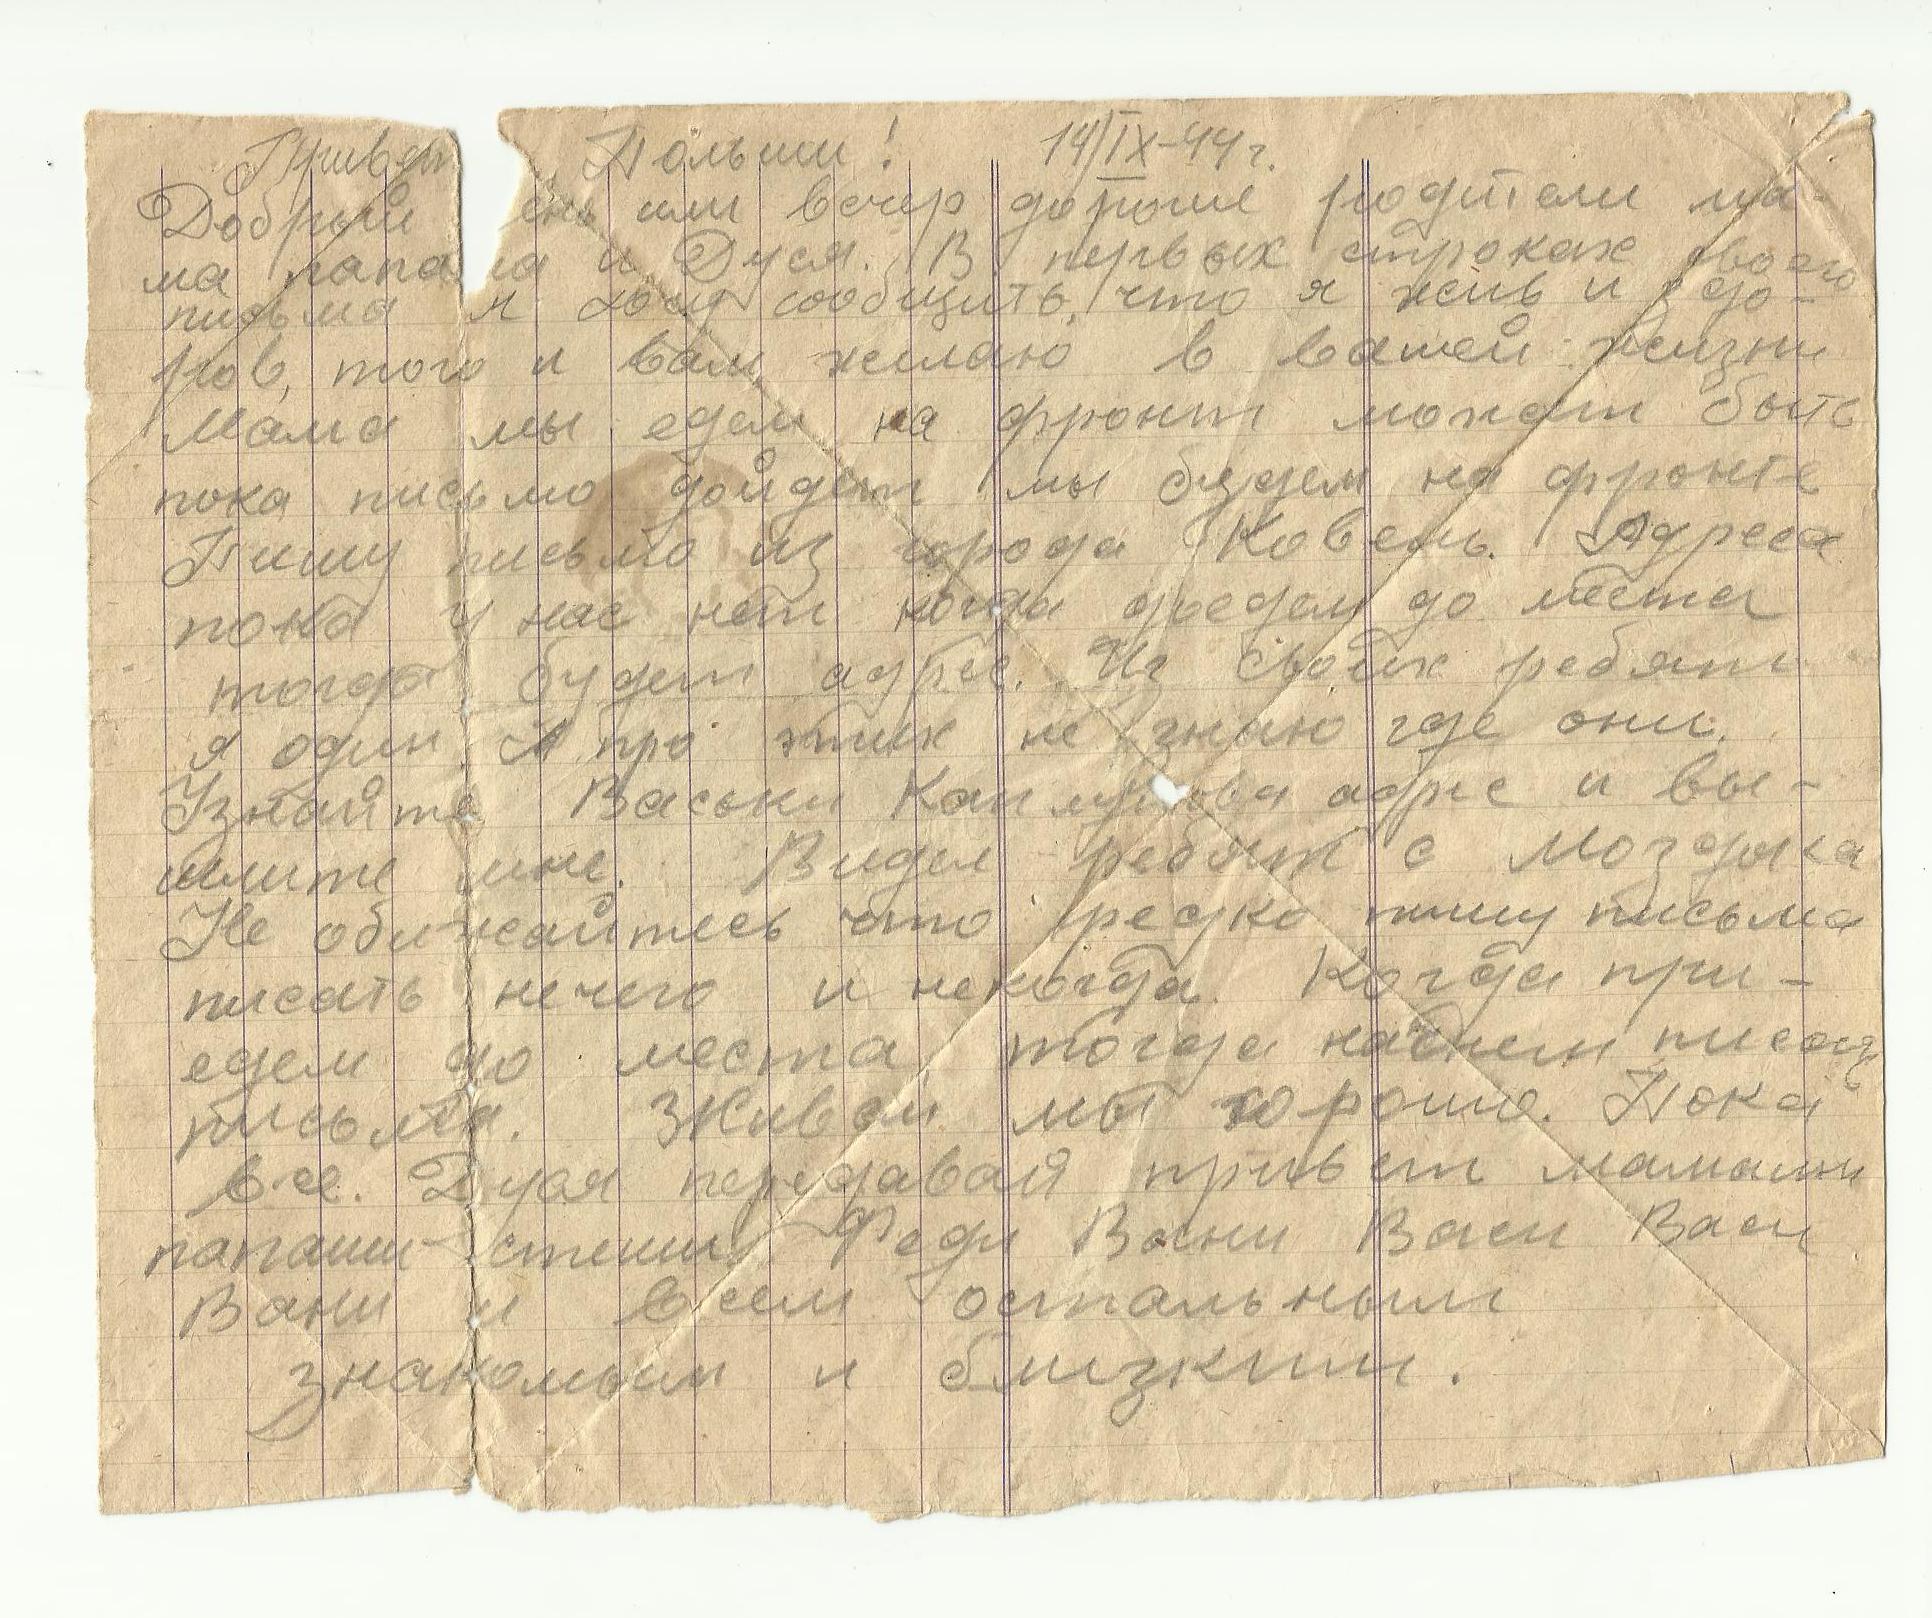 Привет Польши! 14/IX-44 г.
Добрый ень или вечер дорогие родители ма-
ма папа и Дуся. В первых строках своего
письма я хочу сообщить, что я жив и здо-
ров, того и вам желаю в вашей жизни
Мама мы едем на фронт может быть
пока письмо дойдет мы будем на фронте
Пишу письмо из города Ковель. Адреса
пока у нас нет когда доедем до места
тогда будет адрес. Из своих ребят
я один. А про этих не знаю где они.
Узнайте Васьки адрес и вы-
шлите мне. Видел ребят с Моздока
Не обижайтесь что редко пишу письма
писать нечего и некогда. Когда при-
едем до места, тогда начнем писать
письма. Живем мы хорошо. Пока
все. Дуся передавай привет мамаши
папаши Феди Вани Васи Васи
Вани и всем остальным
знакомым и близким.